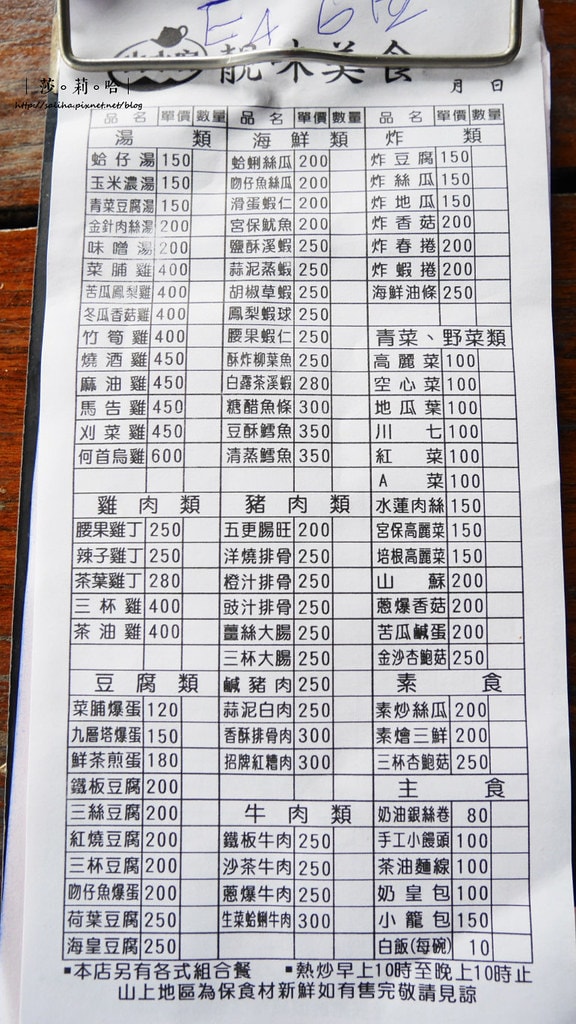 E4 612
靚味美食
月 日
|莎。莉。哈|
http://saliha.pixnet.net/blog
品名 單價 數量
湯類
蛤仔湯 150
玉米濃湯 150
青菜豆腐湯 150
金針肉絲湯 200
味噌湯 200
菜脯雞 400
苦瓜鳳梨雞 400
冬瓜香菇雞 400
竹筍雞 400
燒酒雞 450
麻油雞 450
馬告雞 450
刈菜雞 450
何首烏雞 600
雞肉類
腰果雞丁 250
辣子雞丁 250
茶葉雞丁 280
三杯雞 400
茶油雞 400
豆腐類
菜脯爆蛋 120
九層塔爆蛋 150
鮮茶煎蛋 180
鐵板豆腐 200
三絲豆腐 200
紅燒豆腐 200
三杯豆腐 200
吻仔魚爆蛋 200
荷葉豆腐 250
海皇豆腐 250
品名 單價 數量
海鮮類
蛤蜊絲瓜 200
吻仔魚絲瓜 200
滑蛋蝦仁 200
宮保魷魚 200
鹽酥溪蝦 250
蒜泥蒸蝦 250
胡椒草蝦 250
鳳梨蝦球 250
腰果蝦仁 250
酥炸柳葉魚 250
白露茶溪蝦 280
糖醋魚條 300
豆酥鱈魚 350
清蒸鱈魚 350
豬肉類
五更腸旺 200
洋燒排骨 250
橙汁排骨 250
豉汁排骨 250
薑絲大腸 250
三杯大腸 250
鹹豬肉 250
蒜泥白肉 250
香酥排骨肉 300
招牌紅糟肉 300
牛肉類
鐵板牛肉 250
沙茶牛肉 250
蔥爆牛肉 250
生菜蛤蜊牛肉 300
品名 單價 數量
炸類
炸豆腐 150
炸絲瓜 150
炸地瓜 150
炸香菇 200
炸春捲 200
炸蝦捲 200
海鮮油條 250
青菜、野菜類
高麗菜 100
空心菜 100
地瓜葉 100
川七 100
紅菜 100
A菜 100
水蓮肉絲 150
宮保高麗菜 150
培根高麗菜 150
山蘇 200
蔥爆香菇 200
苦瓜鹹蛋 200
金沙杏鮑菇 250
素食
素炒絲瓜 200
素燴三鮮 200
三杯杏鮑菇 250
主食
奶油銀絲卷 80
手工小饅頭 100
茶油麵線 100
奶皇包 100
小籠包 150
白飯(每碗) 10
▪本店另有各式組合餐 ▪熱炒早上10時至晚上10時止
山上地區為保食材新鮮如有售完敬請見諒